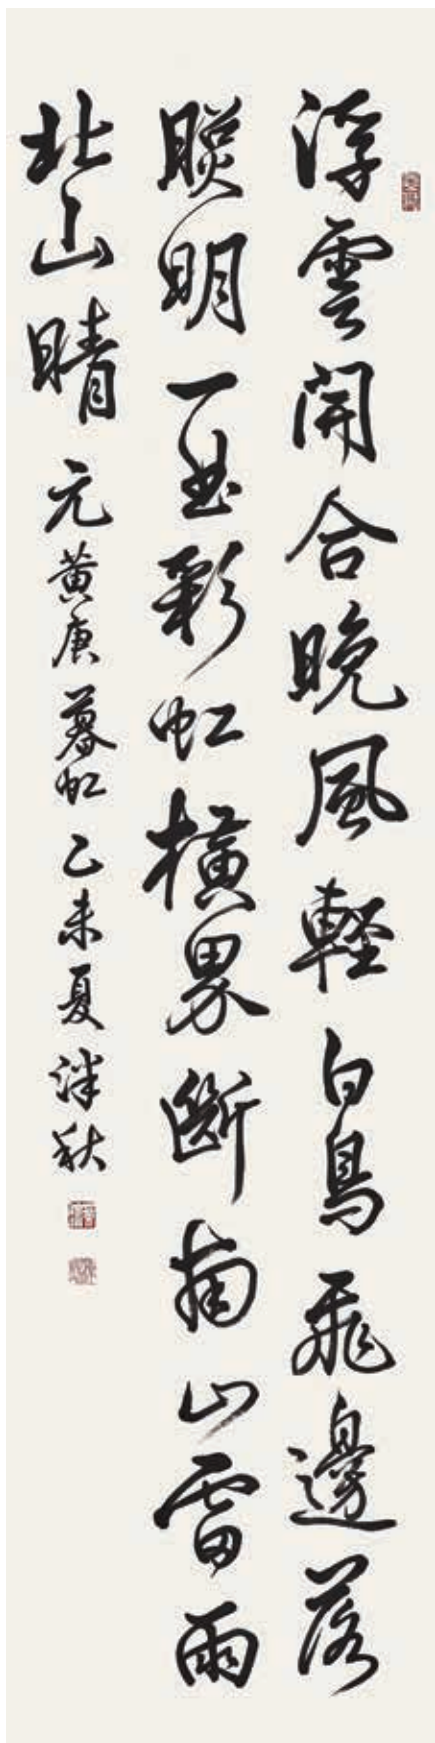 浮雲開合晚風軽白鳥飛邊落
照明一曲彩虹橫界斷南山雷雨
北山晴 元黃庚暮虹 乙未夏泮秋